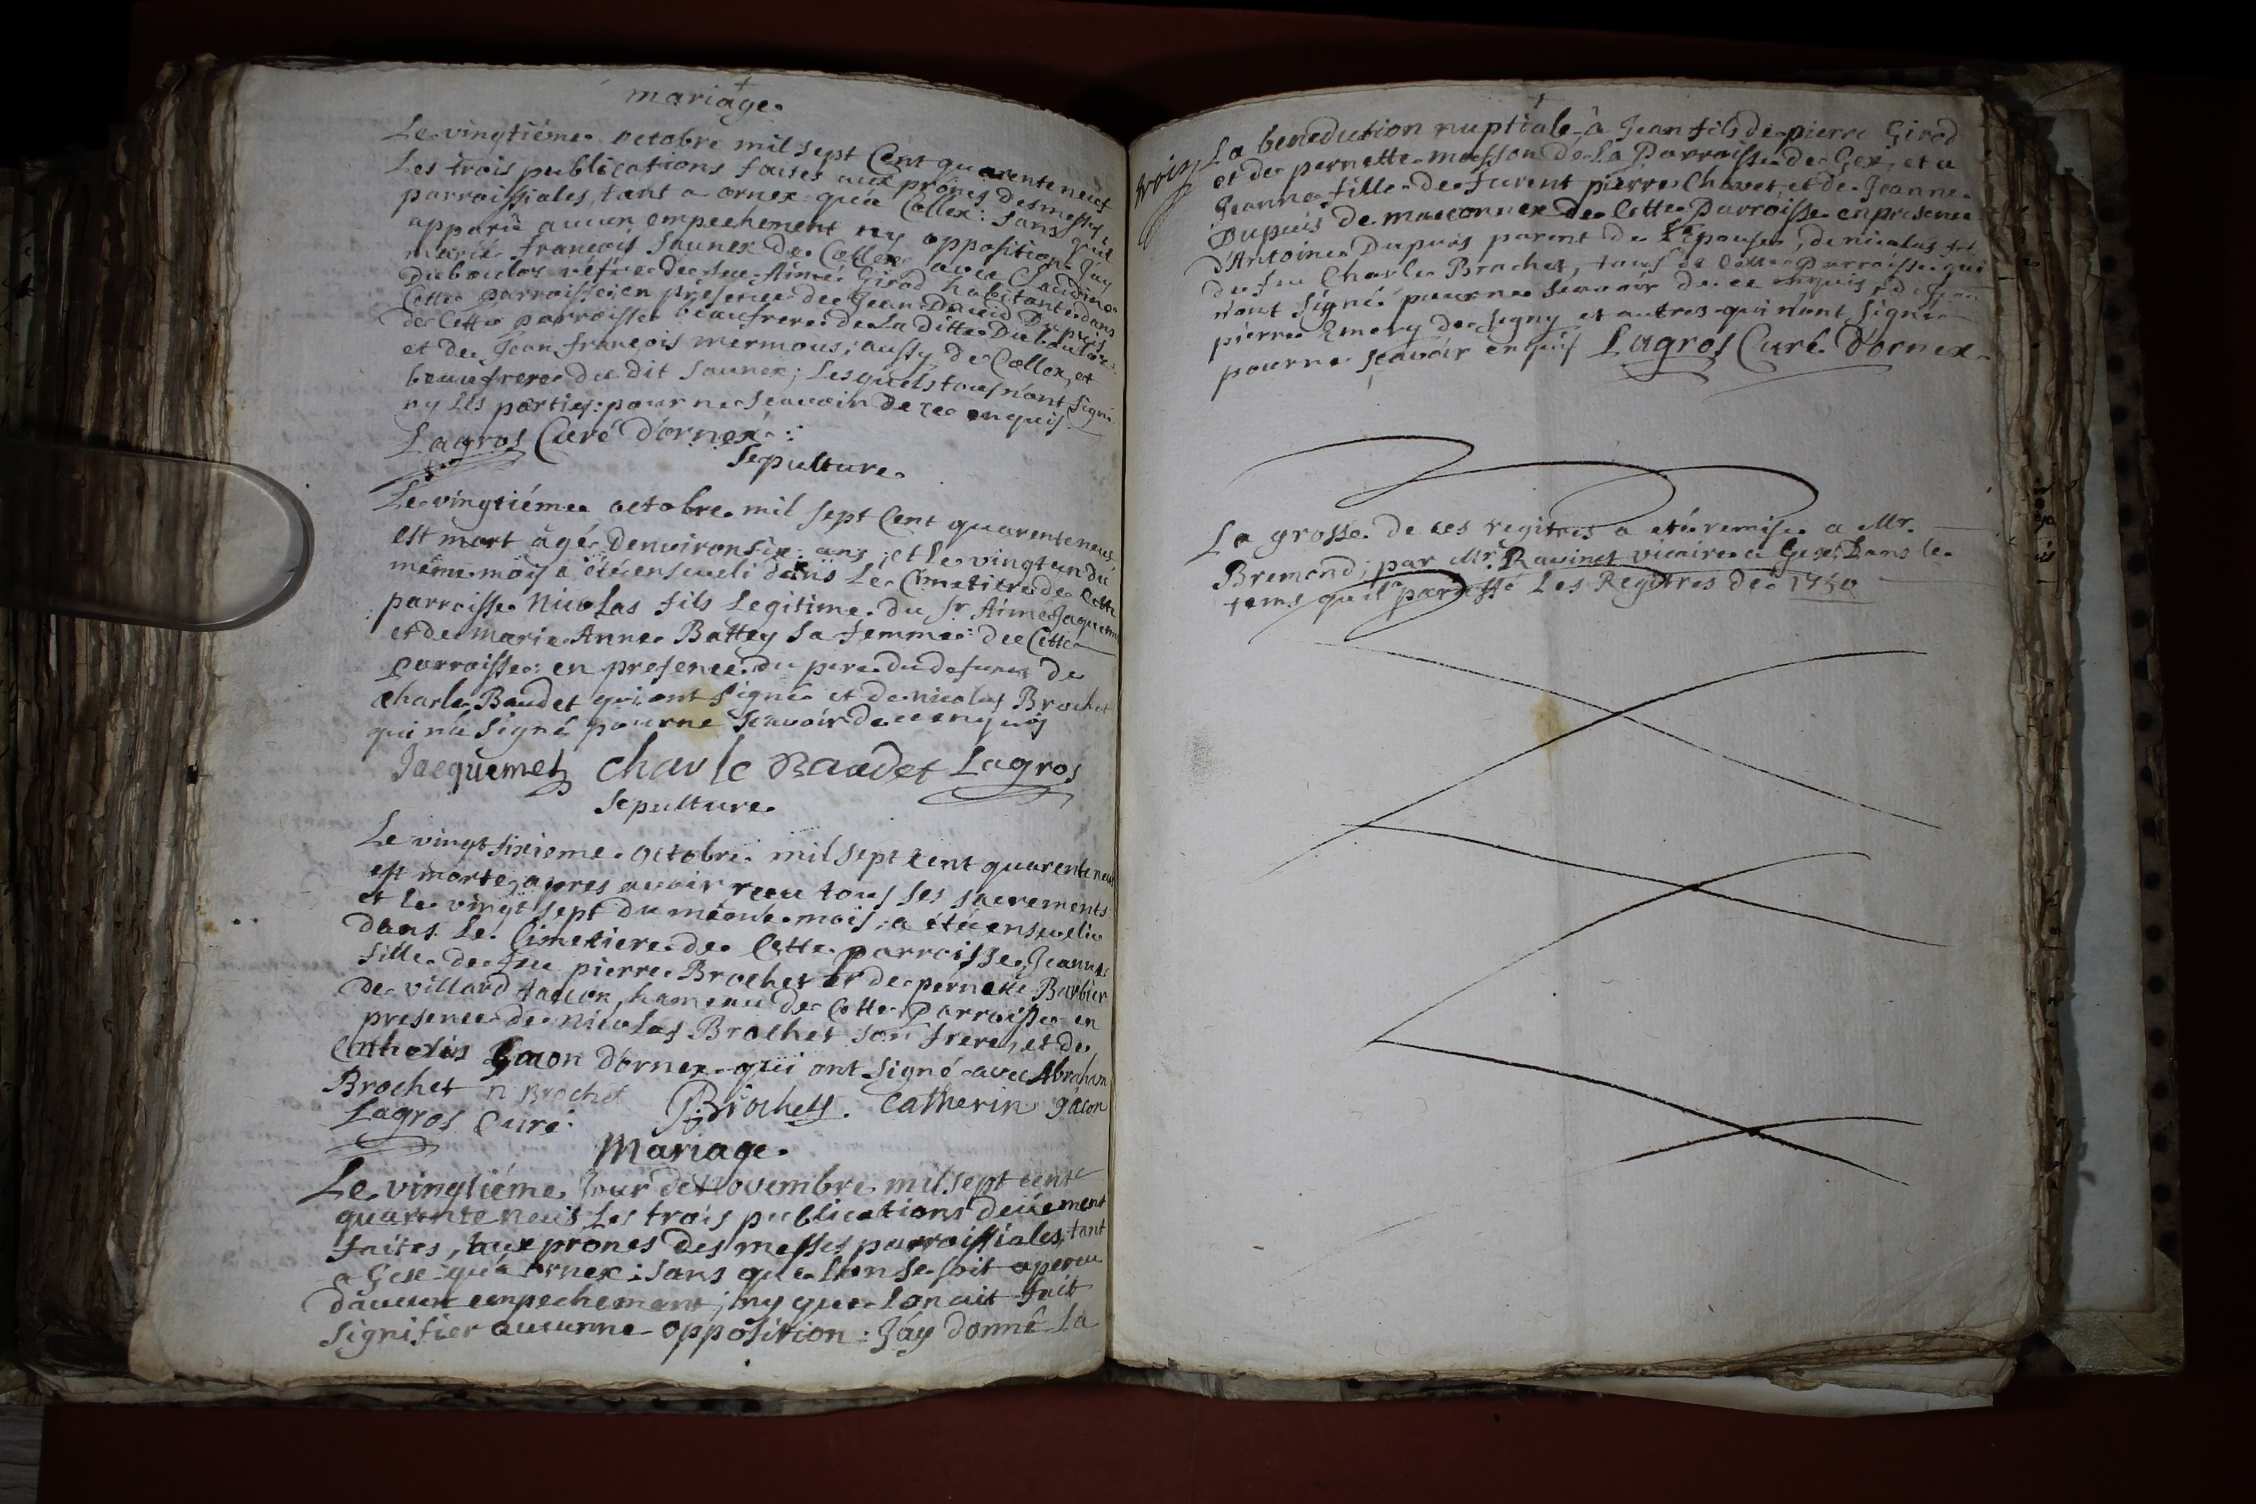 mariage.
Le vingtiéme octobre mil sept Cent quarente neuf
Les trois publications faites aux prônes des messes
parroissiales, tant a ornex qu'a Collex: sans qu'il
apparu aucun empechement ny opposition Jay
marié françois Saunex de Collex avec Claudine
Duboulos vefve de feu Aimé Girod habitante dans
Cette parroisse: en presence de Jean David Dupuis
de Cette parroisse beaufrere de La ditte Duboulos
et de Jean françois mermous; aussy de Collex, et
beaufrere du dit Saunex; Lesquels tous n'ont signé
ny les parties: pour ne Scavoir de ce enquis
Lagros Curé d'ornex
Sepulture
Le vingtiéme octobre mil sept Cent quarente neuf
est mort âgé d'environ six ans; et le vingt un du
même mois a été enseveli dans Le Cimetiere de Cette
parroisse Nicolas fils Legitime du Sr. Aimé Jaquemet
et de Marie Anne Battey sa femme: de Cette
parroisse: en presence du pere du defunct de
Charle Baudet qui ont signé et de nicolas Brochet
qui n'a signé pour ne scavoir de ce enquis
Jacquemet charle Baudet Lagros
Sepulture
Le vingt sixieme octobre mil sept cent quarente neuf
est morte apres avoir receu tous ses sacrements
et le vingt sept du même mois; a été ensevelie
dans Le Cimetiere de Cette parroisse, Jeanne
fille de feu pierre Brochet et de pernette Barbier
de villard tacon, hameau de Cette Parroisse en
presence de Nicolas Brochet son frere, et de
Catherin Gacon d'ornex qui ont signé avec Abraham
Brochet n Brochet Brochet. Catherin gacon
Lagros Curé
Mariage.
Le vingtiéme Jour de Novembre mil sept cent
quarente neuf Les trois publications deuement
faites, aux prones des messes parroissiales, tant
a Gex qu'a ornex: sans que l'on se soit aperceu
d'aucun empechement; ny que l'on ait fait
signifier aucunne opposition: J'ay donné La
La benediction nuptiale à Jean fils de pierre Girod
et de pernette masson de La Parroisse de Gex, et a
Jeanne fille de furent pierre Chavet et de Jeanne
Dupuis de maconnex de Cette Parroisse en presence
d'Antoine Dupuis parent de L'Epouse, de nicolas fils
de feu Charle Brochet, tous de Cette Parroisse qui
n'ont signé pour ne scavoir de ce enquis, et de
pierre Emery de Segny et autres qui n'ont signé
pour ne scavoir enquis Lagros Curé D'ornex
La grosse de ces regitres a eté remise a Mr.
Bremond; par Mr. Ravinet vicaire a Gex; Dans le
tems qu'il Les Regitres de 1750